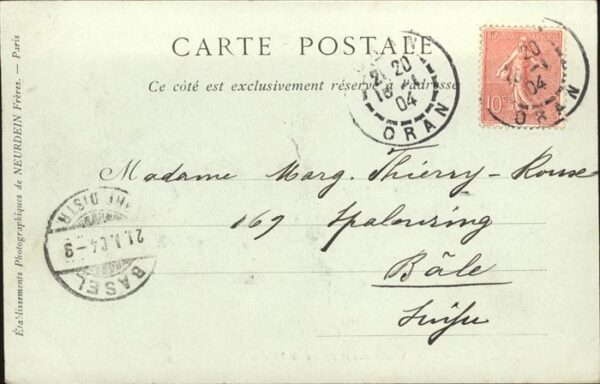 CARTE POSTALE
Ce côté est exclusivement réservé à l'adresse
20
04
ORAN
10
20
04
ORAN
Madame Marg. Thierry-Rouse
169 Spalenring
Bâle
Suisse
BASEL
21.I.04-9
BRF. DISTR.
Établissements Photographiques de NEURDEIN Frères. — Paris